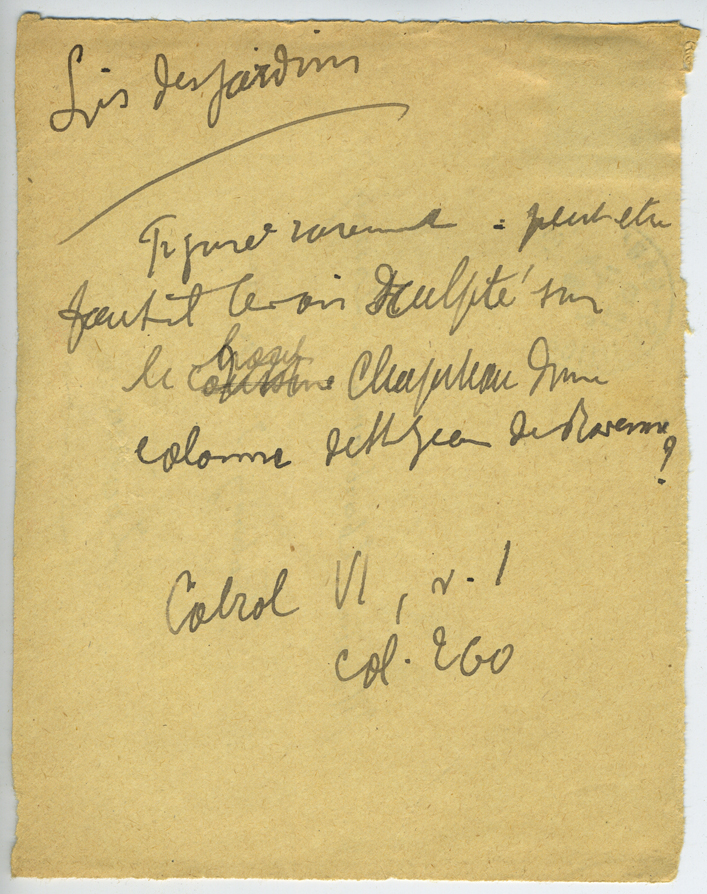 Lis des jardins
Figuré rarement : peut etre
faut il le voir sculpté sur
le chapiteau d'une
colonne de St Jean de Ravenne ?
Cabrol VI, v. 1
col. 260